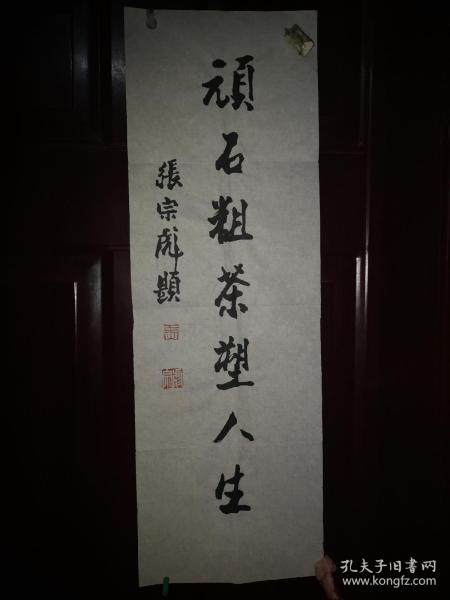 頑石粗茶塑人生
張宗彪題
孔夫子旧书网
www.kongfz.com